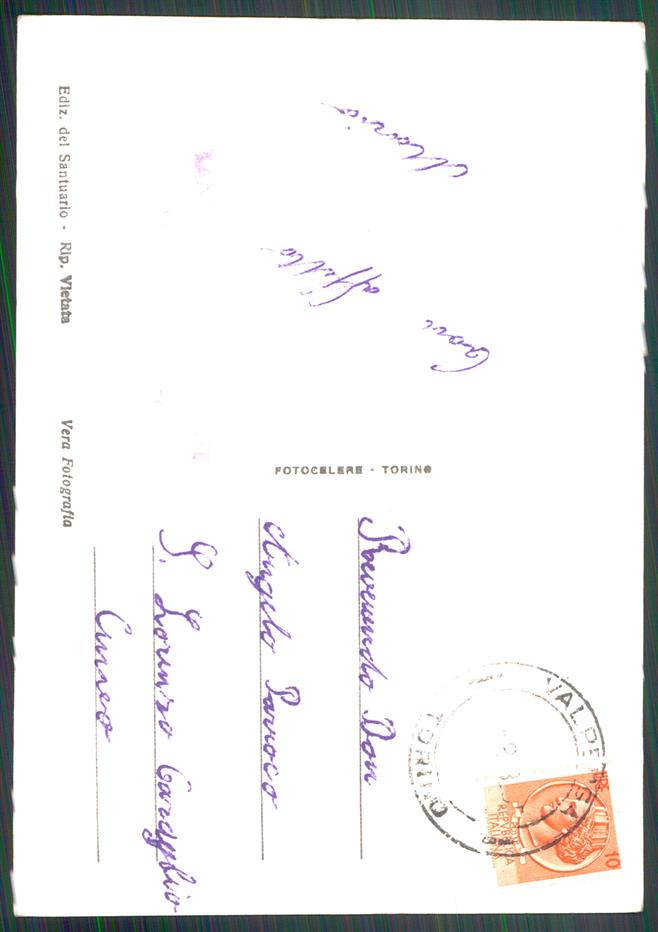 Cari
affetto
Maria
FOTOCELERE - TORINO
Reverendo Don
Angelo Parroco
S. Lorenzo Caraglio
Cuneo
Ediz. del Santuario - Rip. Vietata
Vera Fotografia
VALPERGA
TORINO
REPUBBLICA
ITALIANA
10